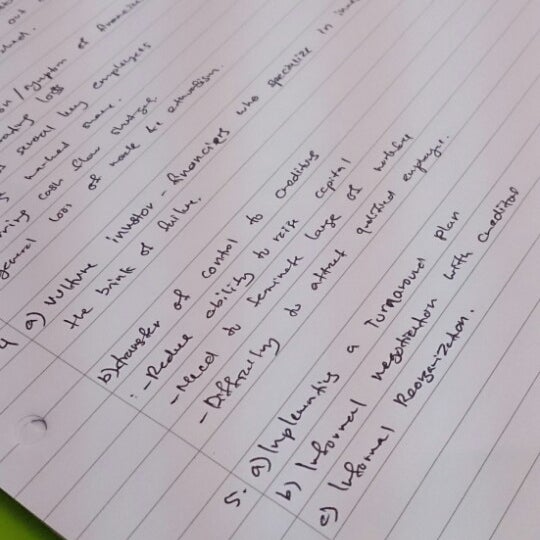 out
on / symptom of financial
rating loss
s several key employees
s market share.
ning cash flow shortage
general loss of morale & enthusiasm.
4 a) Vulture investor - financiers who specialize in
the brink of failure.
b) transfer of control to creditors
:- Reduce ability to raise capital
- Need to terminate large of workforce
- Difficulty to attract qualified employee.
5. a) Implementing a Turnaround Plan
b) Informal negotiation with creditor
c) Informal Reorganization.